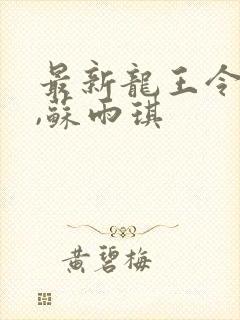 最新龍王令
,蘇雨琪
黃碧梅